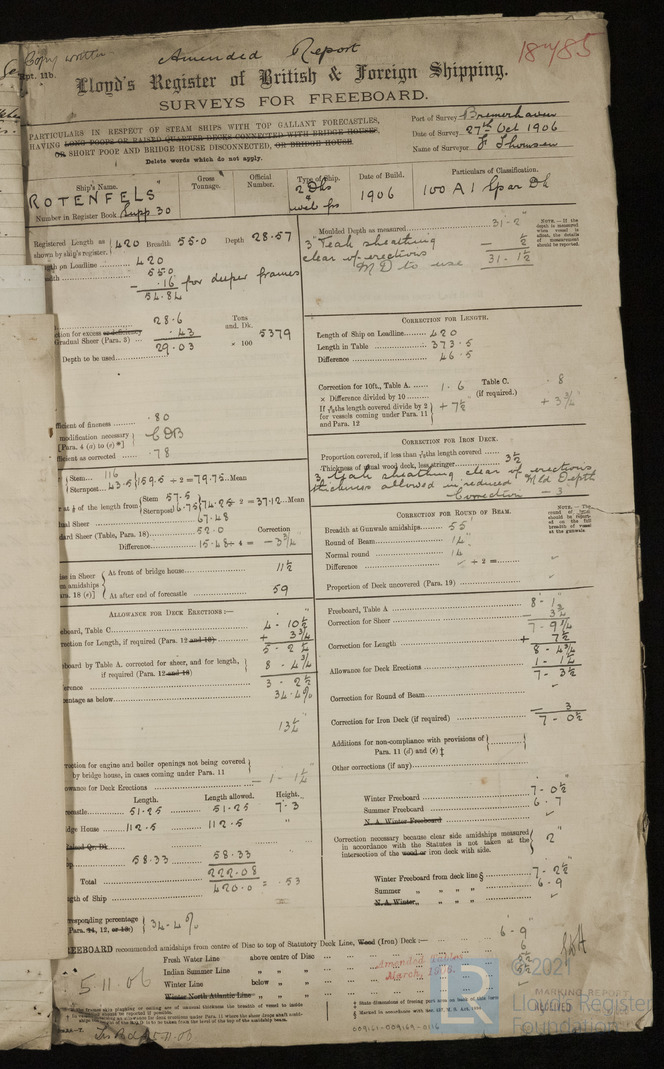 Copy written
Amended Report
Rpt. 11b.
Lloyd's Register of British & Foreign Shipping.
SURVEYS FOR FREEBOARD.
PARTICULARS IN RESPECT OF STEAM SHIPS WITH TOP GALLANT FORECASTLES,
HAVING LONG POOPS OR RAISED QUARTER DECKS CONNECTED WITH BRIDGE HOUSES,
OR SHORT POOP AND BRIDGE HOUSE DISCONNECTED, OR BRIDGE HOUSE
Delete words which do not apply.
Port of Survey Bremerhaven
Date of Survey 27th Oct 1906
Name of Surveyor F Thomsen
Ship's Name. Gross Tonnage. Official Number. Type of Ship. Date of Build. Particulars of Classification.
ROTENFELS 2 Dks 1906 100 A1 Spar Dk
Number in Register Book Supp 30
Registered Length as shown by ship's register 420 Breadth 55.0 Depth 28.57
th on Loadline 420
55.0
- .16 for deeper frames
54.84
28.6
ction for excess or deficiency
Gradual Sheer (Para. 3) .43
29.03
Depth to be used
Tons und. Dk. 5379
" 100
icient of fineness .80
modification necessary
[Para. 4 (a) to (e)*] CDB
fficient as corrected .78
Stem 116
Sternpost 43.5 159.5 ÷ 2 = 79.75 Mean
r at 1/8 of the length from Stem 57.5
Sternpost 16.75 74.25 ÷ 2 = 37.12 Mean
ual Sheer 67.48
dard Sheer (Table, Para. 18) 52.0
Correction
Difference 15.48 ÷ 4 = - 3 3/4
At front of bridge house 11 1/2
At after end of forecastle 59
ALLOWANCE FOR DECK ERECTIONS :—
eboard, Table C 4 - 10 1/2
rection for Length, if required (Para. 12 and 13) + 3 3/4
5 - 2 1/4
eboard by Table A. corrected for sheer, and for length,
if required (Para. 12 and 13) 8 - 4 3/4
erence 3 - 2 1/2
centage as below 34.4%
13 1/4
rection for engine and boiler openings not being covered
by bridge house, in cases coming under Para. 11
owance for Deck Erections - 1 - 1 1/4
Length. Length allowed. Height.
recastle 51.25 51.25 7.3
idge House 112.5 112.5 "
Raised Qr. Dk
p 58.33 58.33
Total 222.08
gth of Ship 420.0 = .53
responding percentage
Para. 11, 12, or 13) 34.4%
Moulded Depth as measured 31-2"
3" Teak sheathing
clear of erections - 1/2
MD to use 31-1 1/2
NOTE.—If the depth is measured when vessel is afloat, the details of measurement should be reported.
CORRECTION FOR LENGTH.
Length of Ship on Loadline 420
Length in Table 373.5
Difference 46.5
Correction for 10ft., Table A. 1.6 Table C. .8
× Difference divided by 10 (if required.)
If 6/10ths length covered divide by 2 + 7 1/2 + 3 3/4
for vessels coming under Para. 11
and Para. 12
CORRECTION FOR IRON DECK.
Proportion covered, if less than 7/10ths length covered
Thickness of usual wood deck, less stringer 3 1/2
3" Teak sheathing clear of erections,
thickness allowed in reduced Mld Depth
Correction - 3
CORRECTION FOR ROUND OF BEAM.
Breadth at Gunwale amidships 55
Round of Beam 14"
Normal round 14
Difference ÷ 2 =
Proportion of Deck uncovered (Para. 19)
Freeboard, Table A 8 - 1
Correction for Sheer - 3 3/4
7 - 9 1/4
Correction for Length + 7 1/2
8 - 4 3/4
Allowance for Deck Erections 1 - 1 1/4
7 - 3 1/2
Correction for Round of Beam
Correction for Iron Deck (if required) - 3
7 - 0 1/2
Additions for non-compliance with provisions of
Para. 11 (d) and (e) ‡
Other corrections (if any)
Winter Freeboard 7 - 0 1/2
Summer Freeboard 6 - 7
N. A. Winter Freeboard
Correction necessary because clear side amidships measured
in accordance with the Statutes is not taken at the
intersection of the wood or iron deck with side. 2"
Winter Freeboard from deck line § 7 - 2 1/2
Summer " " " " 6 - 9
N. A. Winter " " " "
REEBOARD recommended amidships from centre of Disc to top of Statutory Deck Line, Wood (Iron) Deck :— 6 - 9
Fresh Water Line above centre of Disc 6
Indian Summer Line " " " 5 1/2
Winter Line below " " 5 1/2
Winter North Atlantic Line " " "
Amended Tables
March, 1906.
5.11.06
©2021
Lloyd's Register
Foundation
009161-009169-0116